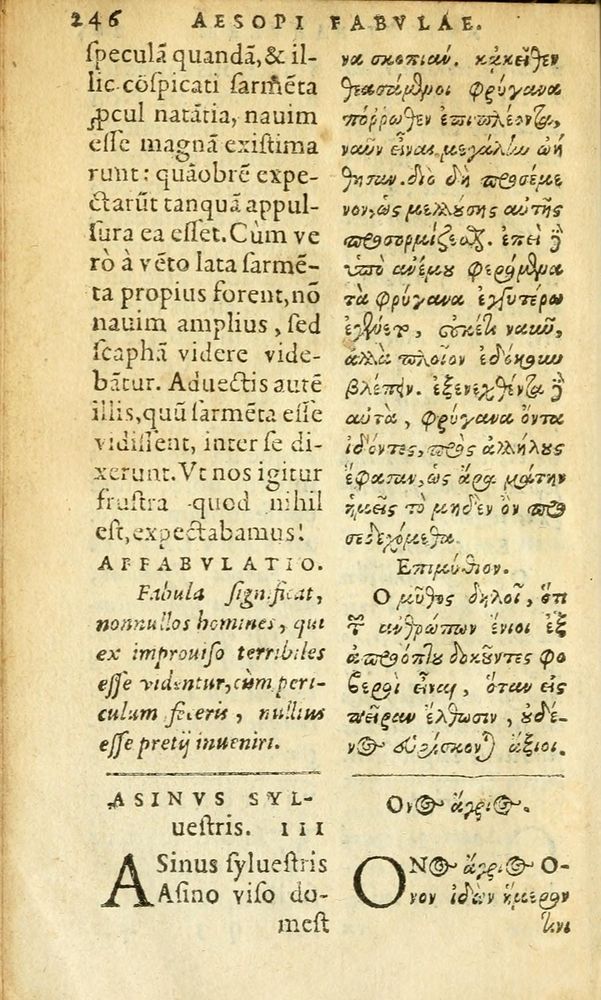 246 AESOPI FABVLAE.
speculā quandā, & il-
lic cōspicati sarmēta
ꝓcul natātia, nauim
esse magnā existima
runt: quāobrē expe-
ctarūt tanquā appul-
sura ea esset. Cùm ve
rò à vēto lata sarmē-
ta propius forent, nō
nauim amplius, sed
scaphā videre vide-
bātur. Aduectis autē
illis, quū sarmēta esse
vidissent, inter se di-
xerunt. Vt nos igitur
frustra quod nihil
est, expectabamus!
AFFABVLATIO.
Fabula significat,
nonnullos homines, qui
ex improuiso terribiles
esse videntur, cùm peri-
culum feceris, nullius
esse pretij inueniri.
ASINVS SYL-
uestris. III
ASinus syluestris
Asino viso do-
mest
να σκοπιάν. κἀκεῖθεν
θεασάμθμοι φρύγανα
πόῤῥωθεν ἐπιπλέοντα,
ναῦν εἶναι μεγάλίω ᾠή
θησαν. διὸ δὴ προσέμε
νον, ὡς μελλούσης αὐτῆς
προσορμίζεοθ. ἐπεὶ ἢ
ὑπὸ ἀνέμου φερόμθμα
τὰ φρύγανα ἐγγυτέρω
ἐγένετο, οὐκέτι ναῦν,
ἀλλὰ πλοῖον ἐδόκησαν
βλέπειν. ἐξενεχθέντα ἢ
αὐτὰ, φρύγανα ὄντα
ἰδόντες, πρὸς ἀλλήλους
ἔφασαν, ὡς ἄρα μάτην
ἡμεῖς τὸ μηδὲν ὂν προ
σεδεχόμεθα.
Επιμύθιον.
Ο μῦθος δηλοῖ, ὅτι
τῶν ἀνθρώπων ἔνιοι ἐξ
ἀπροόπτου δοκοῦντες φο
βεροὶ εἶναι, ὅταν εἰς
πεῖραν ἔλθωσιν, οὐδέ-
νος εὑρίσκονται ἄξιοι.
Ονος ἄγριος.
ΟΝος ἄγριος Ο-
νον ἰδὼν ἥμερον
τινι